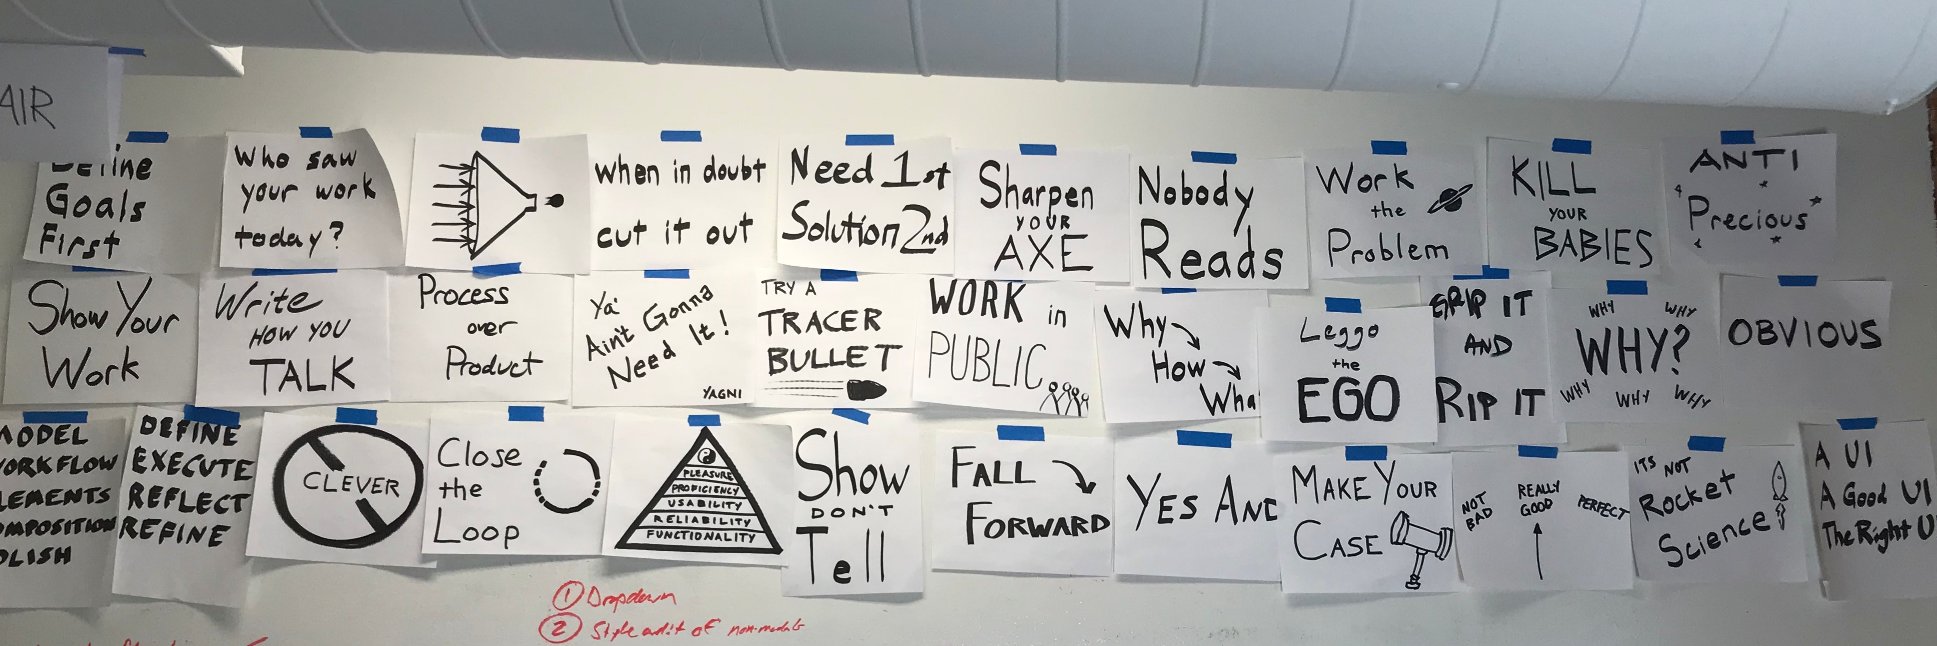 AIR
Define
Goals
First
Who saw
your work
today?
when in doubt
cut it out
Need 1st
Solution 2nd
Sharpen
YOUR
AXE
Nobody
Reads
Work
the
Problem
KILL
YOUR
BABIES
ANTI
Precious
Show Your
Work
Write
HOW YOU
TALK
Process
over
Product
Ya'
Ain't Gonna
Need It!
YAGNI
TRY A
TRACER
BULLET
WORK in
PUBLIC
Why
How
Wha
Leggo
the
EGO
GRIP IT
AND
RIP IT
WHY WHY
WHY?
WHY WHY WHY
OBVIOUS
MODEL
WORKFLOW
LEMENTS
OMPOSITION
OLISH
DEFINE
EXECUTE
REFLECT
REFINE
CLEVER
Close
the
Loop
PLEASURE
PROFICIENCY
USABILITY
RELIABILITY
FUNCTIONALITY
Show
DON'T
Tell
FALL
FORWARD
YES AND
MAKE YOUR
CASE
NOT
BAD
REALLY
GOOD
PERFECT
ITS NOT
Rocket
Science
A UI
A Good UI
The Right U
1 Dropdown
2 Style audit of non-modals